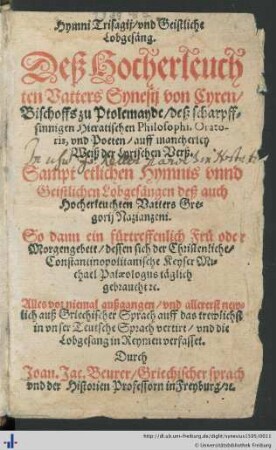 Hymni Trisagij/ vnd Geistliche
Lobgesäng.
Deß Hocherleuch
ten Vatters Synesij von Cyren/
Bischoffs zu Ptolemayde/ deß scharpff-
sinnigen Hieratischen Philosophi, Orato-
ris, vnd Poeten/ auff mancherley
Weiß der Lyrischen Verß.
Sampt etlichen Hymnis vnnd
Geistlichen Lobgesängen deß auch
Hocherleuchten Vatters Gre-
gorij Nazianzeni.
So dann ein fürtreffenlich Frü oder
Morgengebett/ dessen sich der Christenliche/
Constantinopolitanische Keyser Mi-
chael Palæologus täglich
gebraucht ꝛc.
Alles vor niemal außgangen/ vnd allererst new-
lich auß Griechischer Sprach auff das trewlichst
in vnser Teutsche Sprach vertirt/ vnd die
Lobgesang in Reymen verfasset.
Durch
Joan. Jac. Beurer/ Griechischer sprach
vnd der Historien Professorn in Freyburg/ ꝛc.
http://dl.ub.uni-freiburg.de/diglit/synesius1595/0011